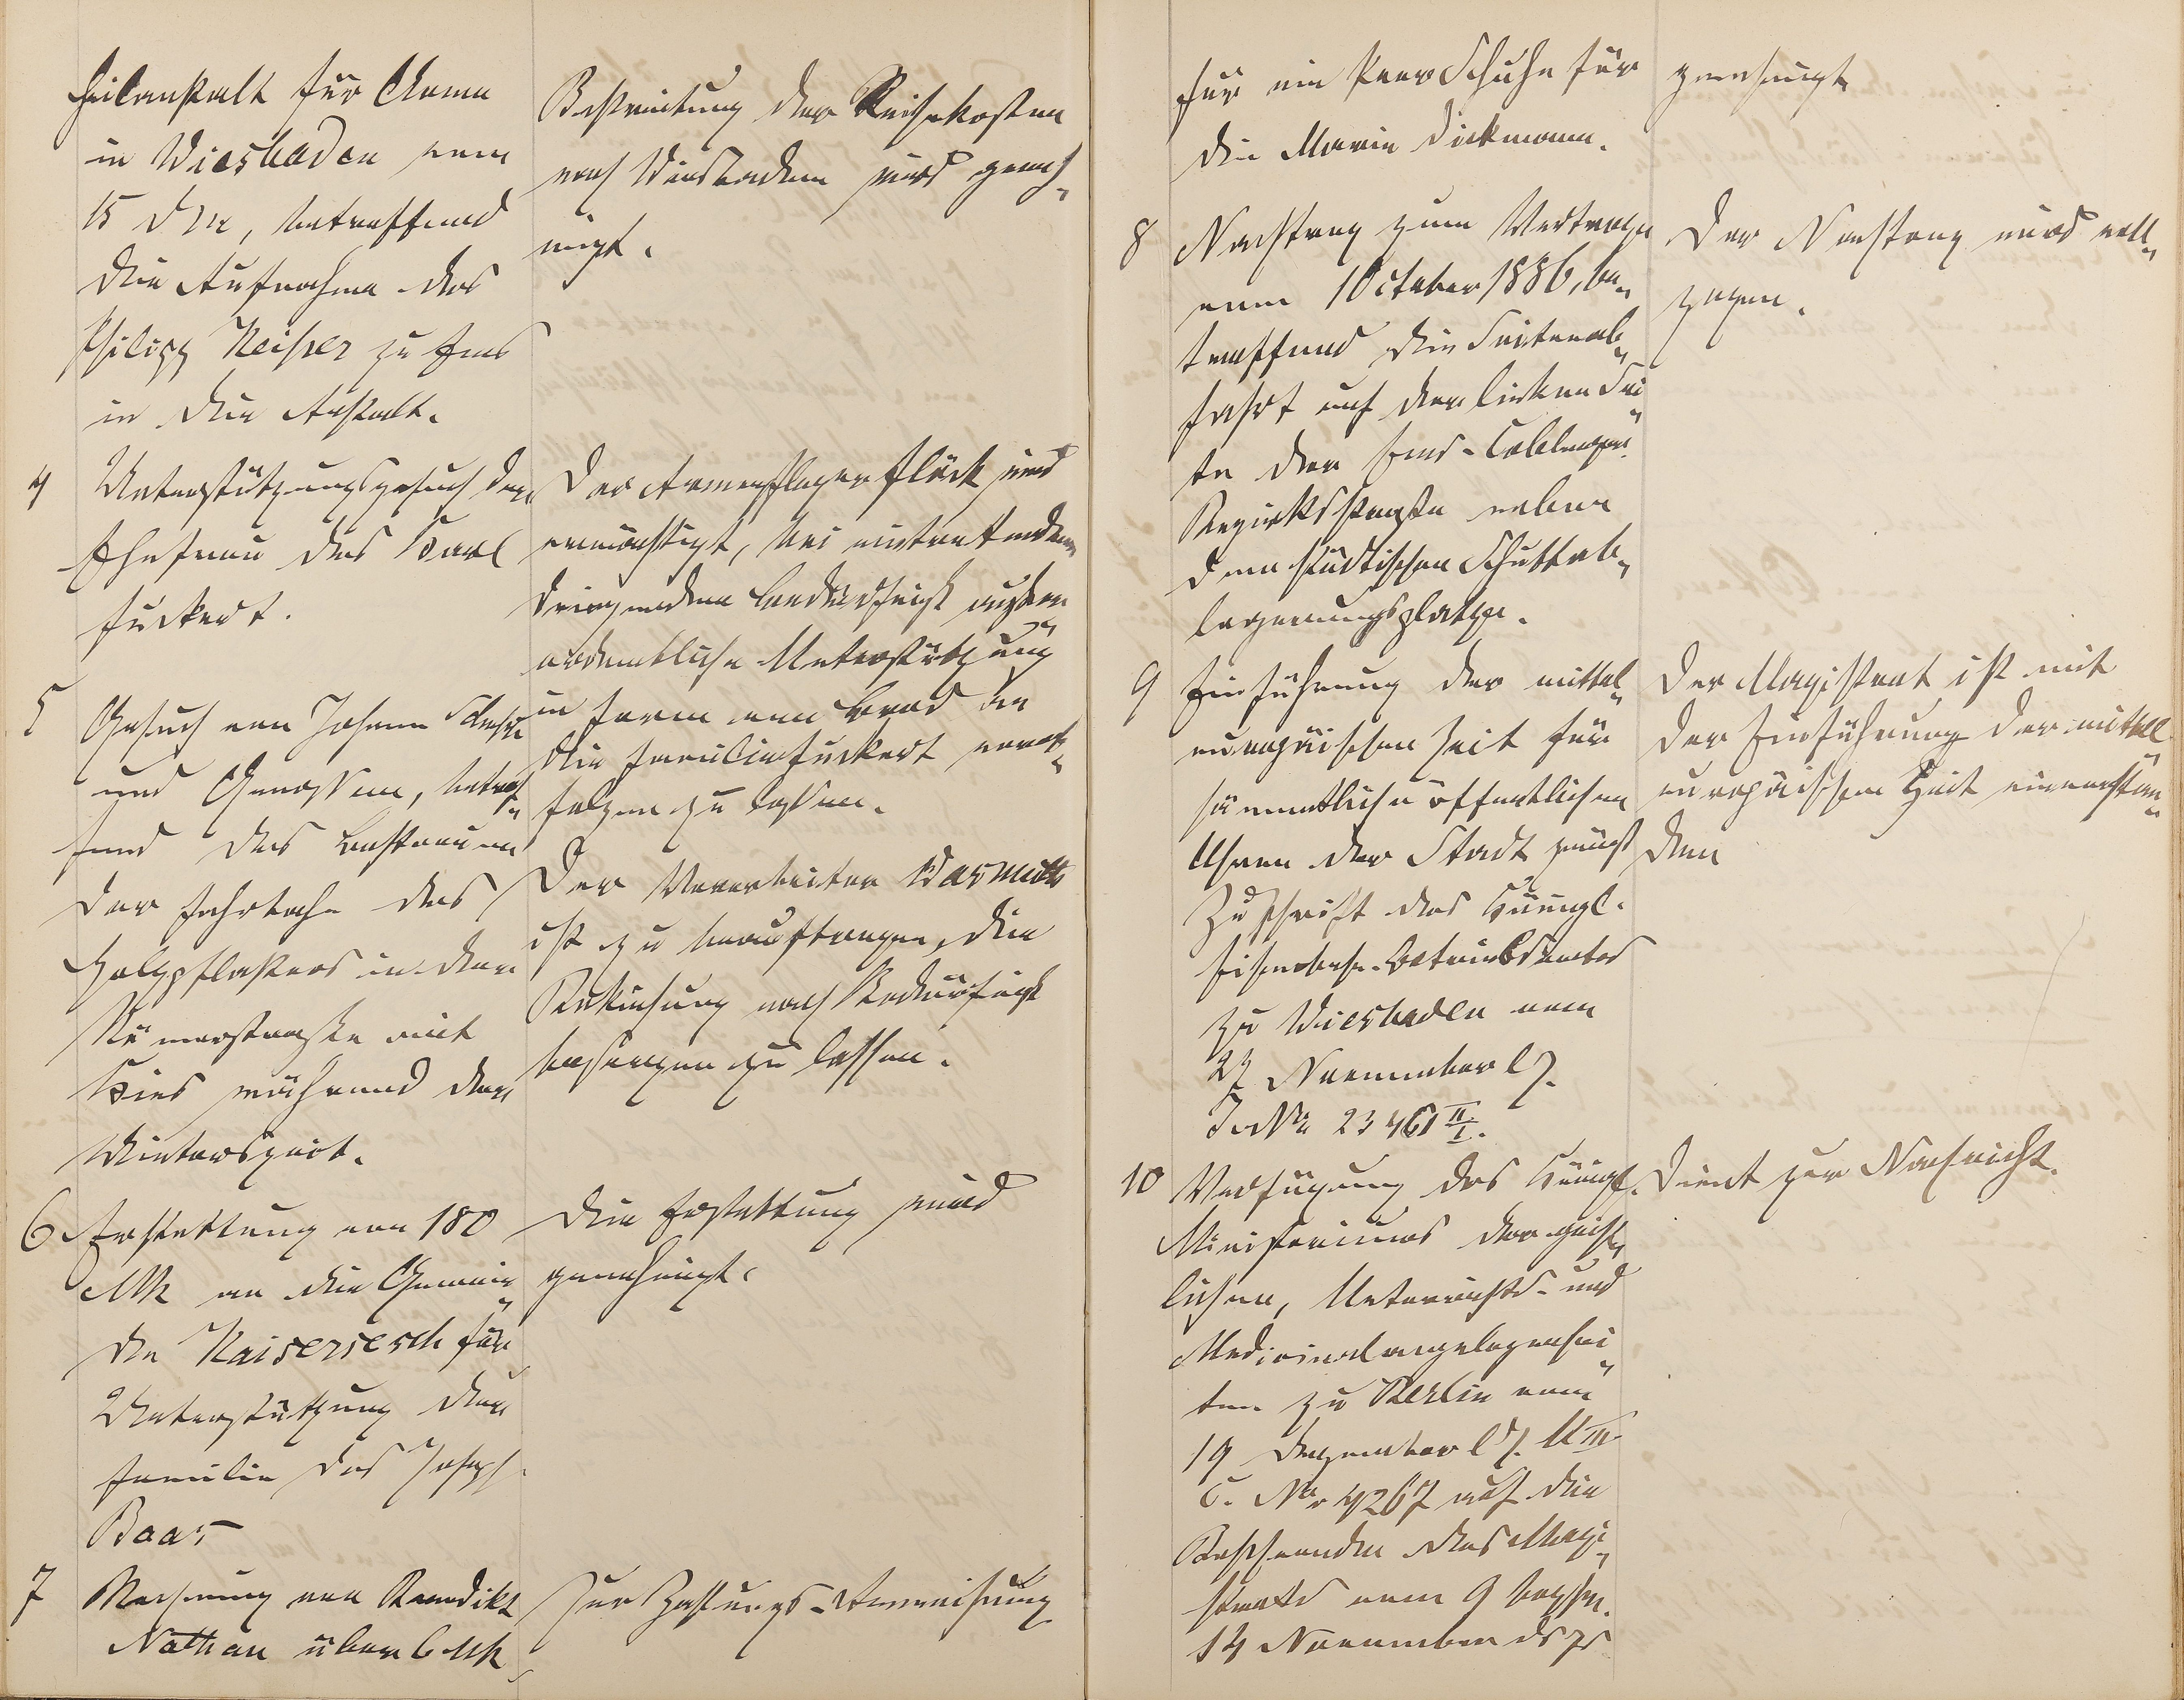 Heilanstalt für Arme
in Wiesbaden vom
15 d Mts, betreffend
die Aufnahme des
Philipp Reiser zu Ems
in die Anstalt.
Bestreitung der Reisekosten
nach Wiesbaden wird geneh„
migt.
4 Unterstützungsgesuch der
Ehefrau des Karl
Fuckert.
Der Armenpfleger Flöck wird
ermächtigt, bei eintretendem
dringendem Bedürfniß außer„
ordentliche Unterstützung
in Form von Brod an
die Familie Fuckert verab„
folgen zu lassen.
5 Gesuch von Johann
und Genossen, betref„
fend das Bestreuen
der Fahrbahn des
Holzpflasters in der
Römerstraße mit
Kies während der
Winterszeit.
Der Vorarbeiter Warmuth
ist zu beauftragen, die
Bekiesung nach Bedürfniß
besorgen zu lassen.
6 Erstattung von 180
Mk an die Gemein„
de Kaisersesch für
Unterstützung der
Familie des Joseph
Baas
Die Erstattung wird
genehmigt.
7 Rechnung von Benedikt
Nathan über 6 Mk
Zur Zahlungs-Anweisung
für ein Paar Schuhe für
die Marie Dickmann.
genehmigt
8 Nachtrag zum Vertrage
vom 1 October 1886, be„
treffend die Seitenab„
fahrt auf der linken Sei„
te der Ems-Coblenzer
Bezirksstraße neben
dem städtischen Schuttab„
lagerungsplatze.
Der Nachtrag wird voll„
zogen.
9 Einführung der mittel„
europäischen Zeit für
sämmtliche öffentlichen
Uhren der Stadt gemäß
Zuschrift des Königl.
Eisenbahn-Betriebsamtes
zu Wiesbaden vom
27 November l J.
J. No 23461 II/I.
Der Magistrat ist mit
der Einführung der mittel
europäischen Zeit einverstan„
den
10 Verfügung des Königl.
Ministeriums der geist„
lichen, Unterrichts- und
Medicinalangelegenhei„
ten zu Berlin vom
19 Dezember l J. U III
C. No 4267 auf die
Beschwerden des Magi„
strats vom 9 bezw.
14 November ds Js
Dient zur Nachricht.